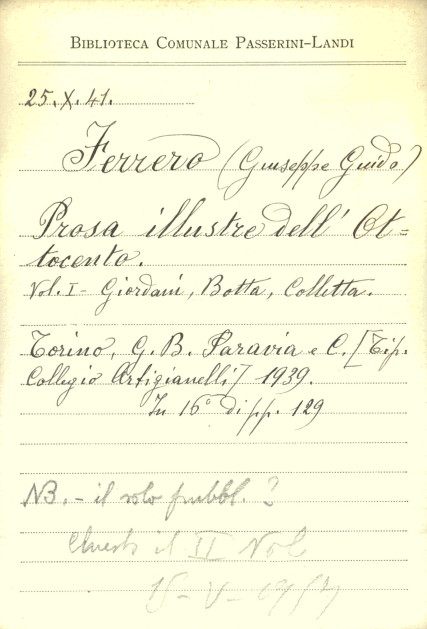 BIBLIOTECA COMUNALE PASSERINI-LANDI
25.X.41.
Ferrero (Giuseppe Guido)
Prosa illustre dell' Ot=
tocento.
Vol. I - Giordani, Botta, Colletta.
Torino, G. B. Paravia e C. [Tip.
Collegio Artigianelli] 1939.
In 16° di pp. 129
NB. - il solo pubbl. ?
il II Vol
15 - V -